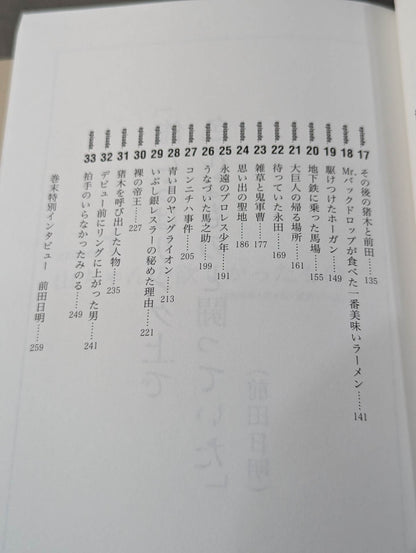 episode 17 その後の猪木と前田……135
episode 18 Mr.バックドロップが食べた一番美味いラーメン……141
episode 19 駆けつけたホーガン……149
episode 20 地下鉄に乗った馬場……155
episode 21 大巨人の帰る場所……161
episode 22 待っていた永田……169
episode 23 雑草と鬼軍曹……177
episode 24 思い出の聖地……186
episode 25 永遠のプロレス少年……191
episode 26 うなづいた馬之助……199
episode 27 コンニチハ事件……205
episode 28 青い目のヤングライオン……213
episode 29 いぶし銀レスラーの秘めた理由……221
episode 30 裸の帝王……227
episode 31 猪木を呼び出した人物……235
episode 32 デビュー前にリングに上がった男……241
episode 33 拍手のいらなかったみのる……249
巻末特別インタビュー　前田日明……259